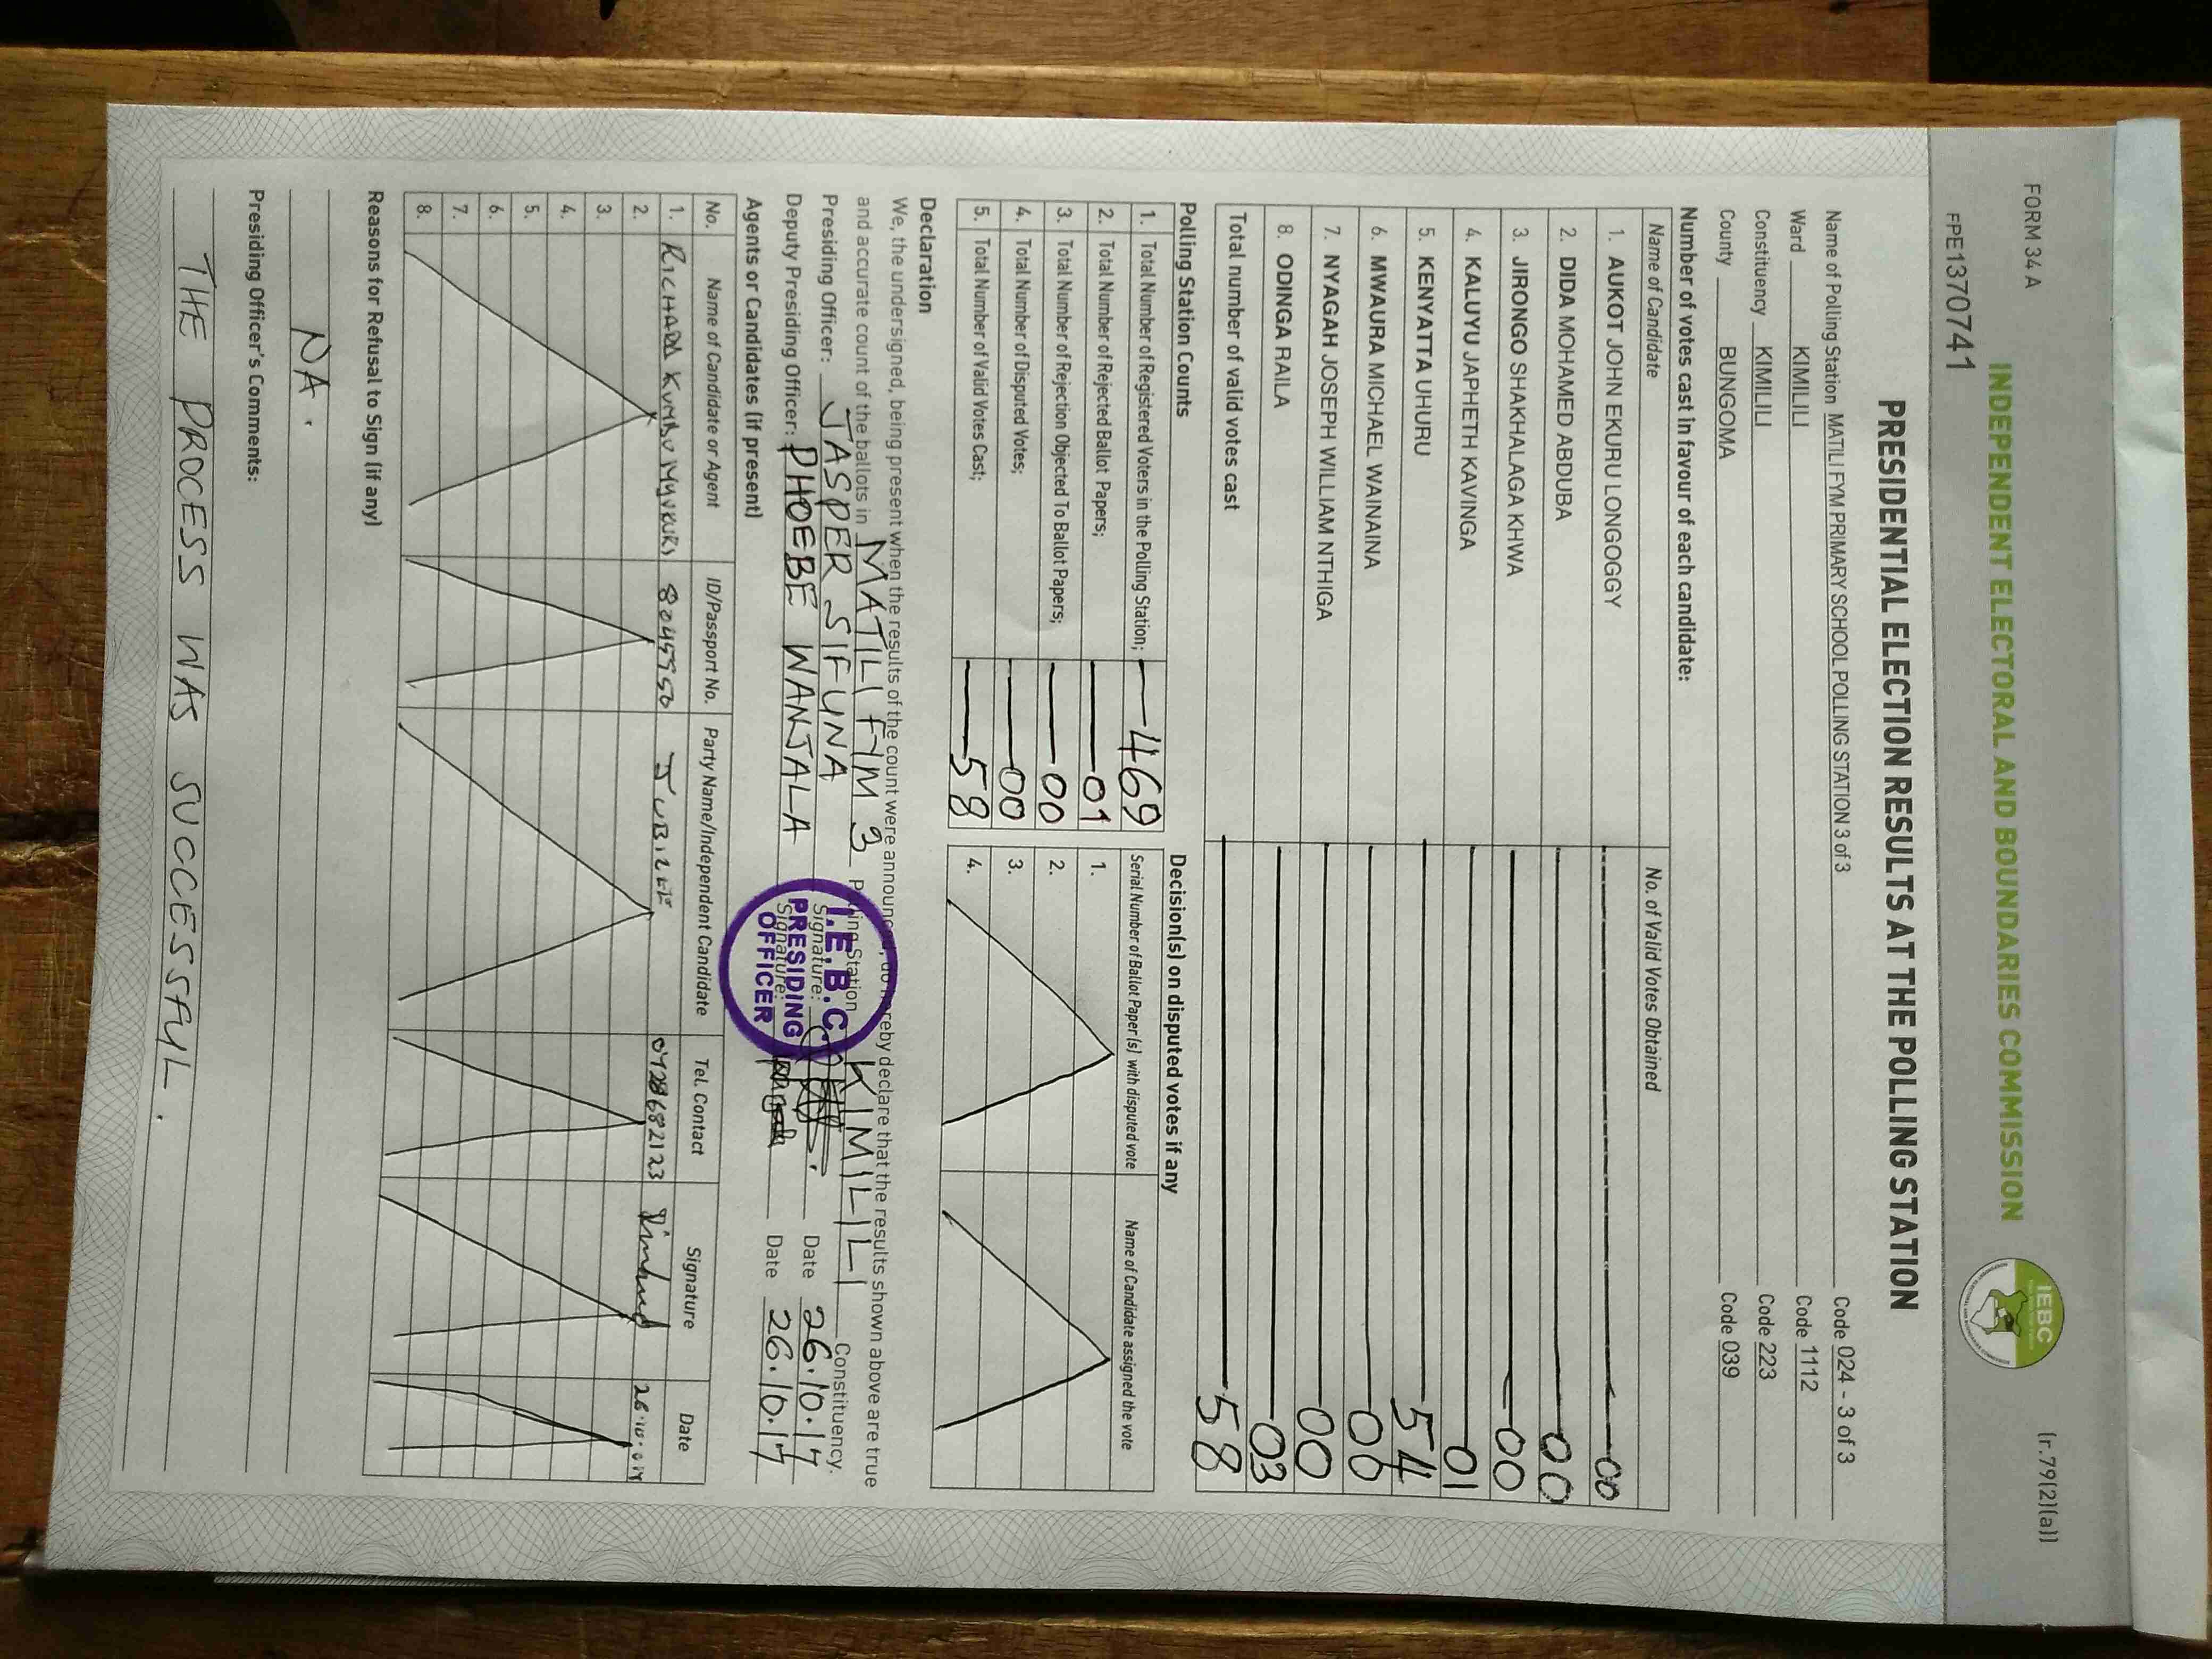 FORM 34 A
(r.79(2)(a))
INDEPENDENT ELECTORAL AND BOUNDARIES COMMISSION
IEBC
FPE1370741
PRESIDENTIAL ELECTION RESULTS AT THE POLLING STATION
Name of Polling Station MATILI FYM PRIMARY SCHOOL POLLING STATION 3 of 3 Code 024 - 3 of 3
Ward KIMILILI Code 1112
Constituency KIMILILI Code 223
County BUNGOMA Code 039
Number of votes cast in favour of each candidate:
Name of Candidate No. of Valid Votes Obtained
1. AUKOT JOHN EKURU LONGOGGY 00
2. DIDA MOHAMED ABDUBA 00
3. JIRONGO SHAKHALAGA KHWA 00
4. KALUYU JAPHETH KAVINGA 01
5. KENYATTA UHURU 54
6. MWAURA MICHAEL WAINAINA 00
7. NYAGAH JOSEPH WILLIAM NTHIGA 00
8. ODINGA RAILA 03
Total number of valid votes cast 58
Polling Station Counts
1. Total Number of Registered Voters in the Polling Station; 469
2. Total Number of Rejected Ballot Papers; 01
3. Total Number of Rejection Objected To Ballot Papers; 00
4. Total Number of Disputed Votes; 00
5. Total Number of Valid Votes Cast; 58
Decision(s) on disputed votes if any
Serial Number of Ballot Paper(s) with disputed vote Name of Candidate assigned the vote
1.
2.
3.
4.
Declaration
We, the undersigned, being present when the results of the count were announced, do hereby declare that the results shown above are true
and accurate count of the ballots in MATILI FYM 3 Polling Station KIMILILI Constituency.
Presiding Officer: JASPER SIFUNA Signature: Date 26.10.17
Deputy Presiding Officer: PHOEBE WANJALA Signature: Date 26.10.17
I.E.B.C.
PRESIDING
OFFICER
Agents or Candidates (if present)
No. Name of Candidate or Agent ID/Passport No. Party Name/Independent Candidate Tel. Contact Signature Date
1. RICHARD JUBILEE
2.
3.
4.
5.
6.
7.
8.
Reasons for Refusal to Sign (if any)
NA.
Presiding Officer's Comments:
THE PROCESS WAS SUCCESSFUL.